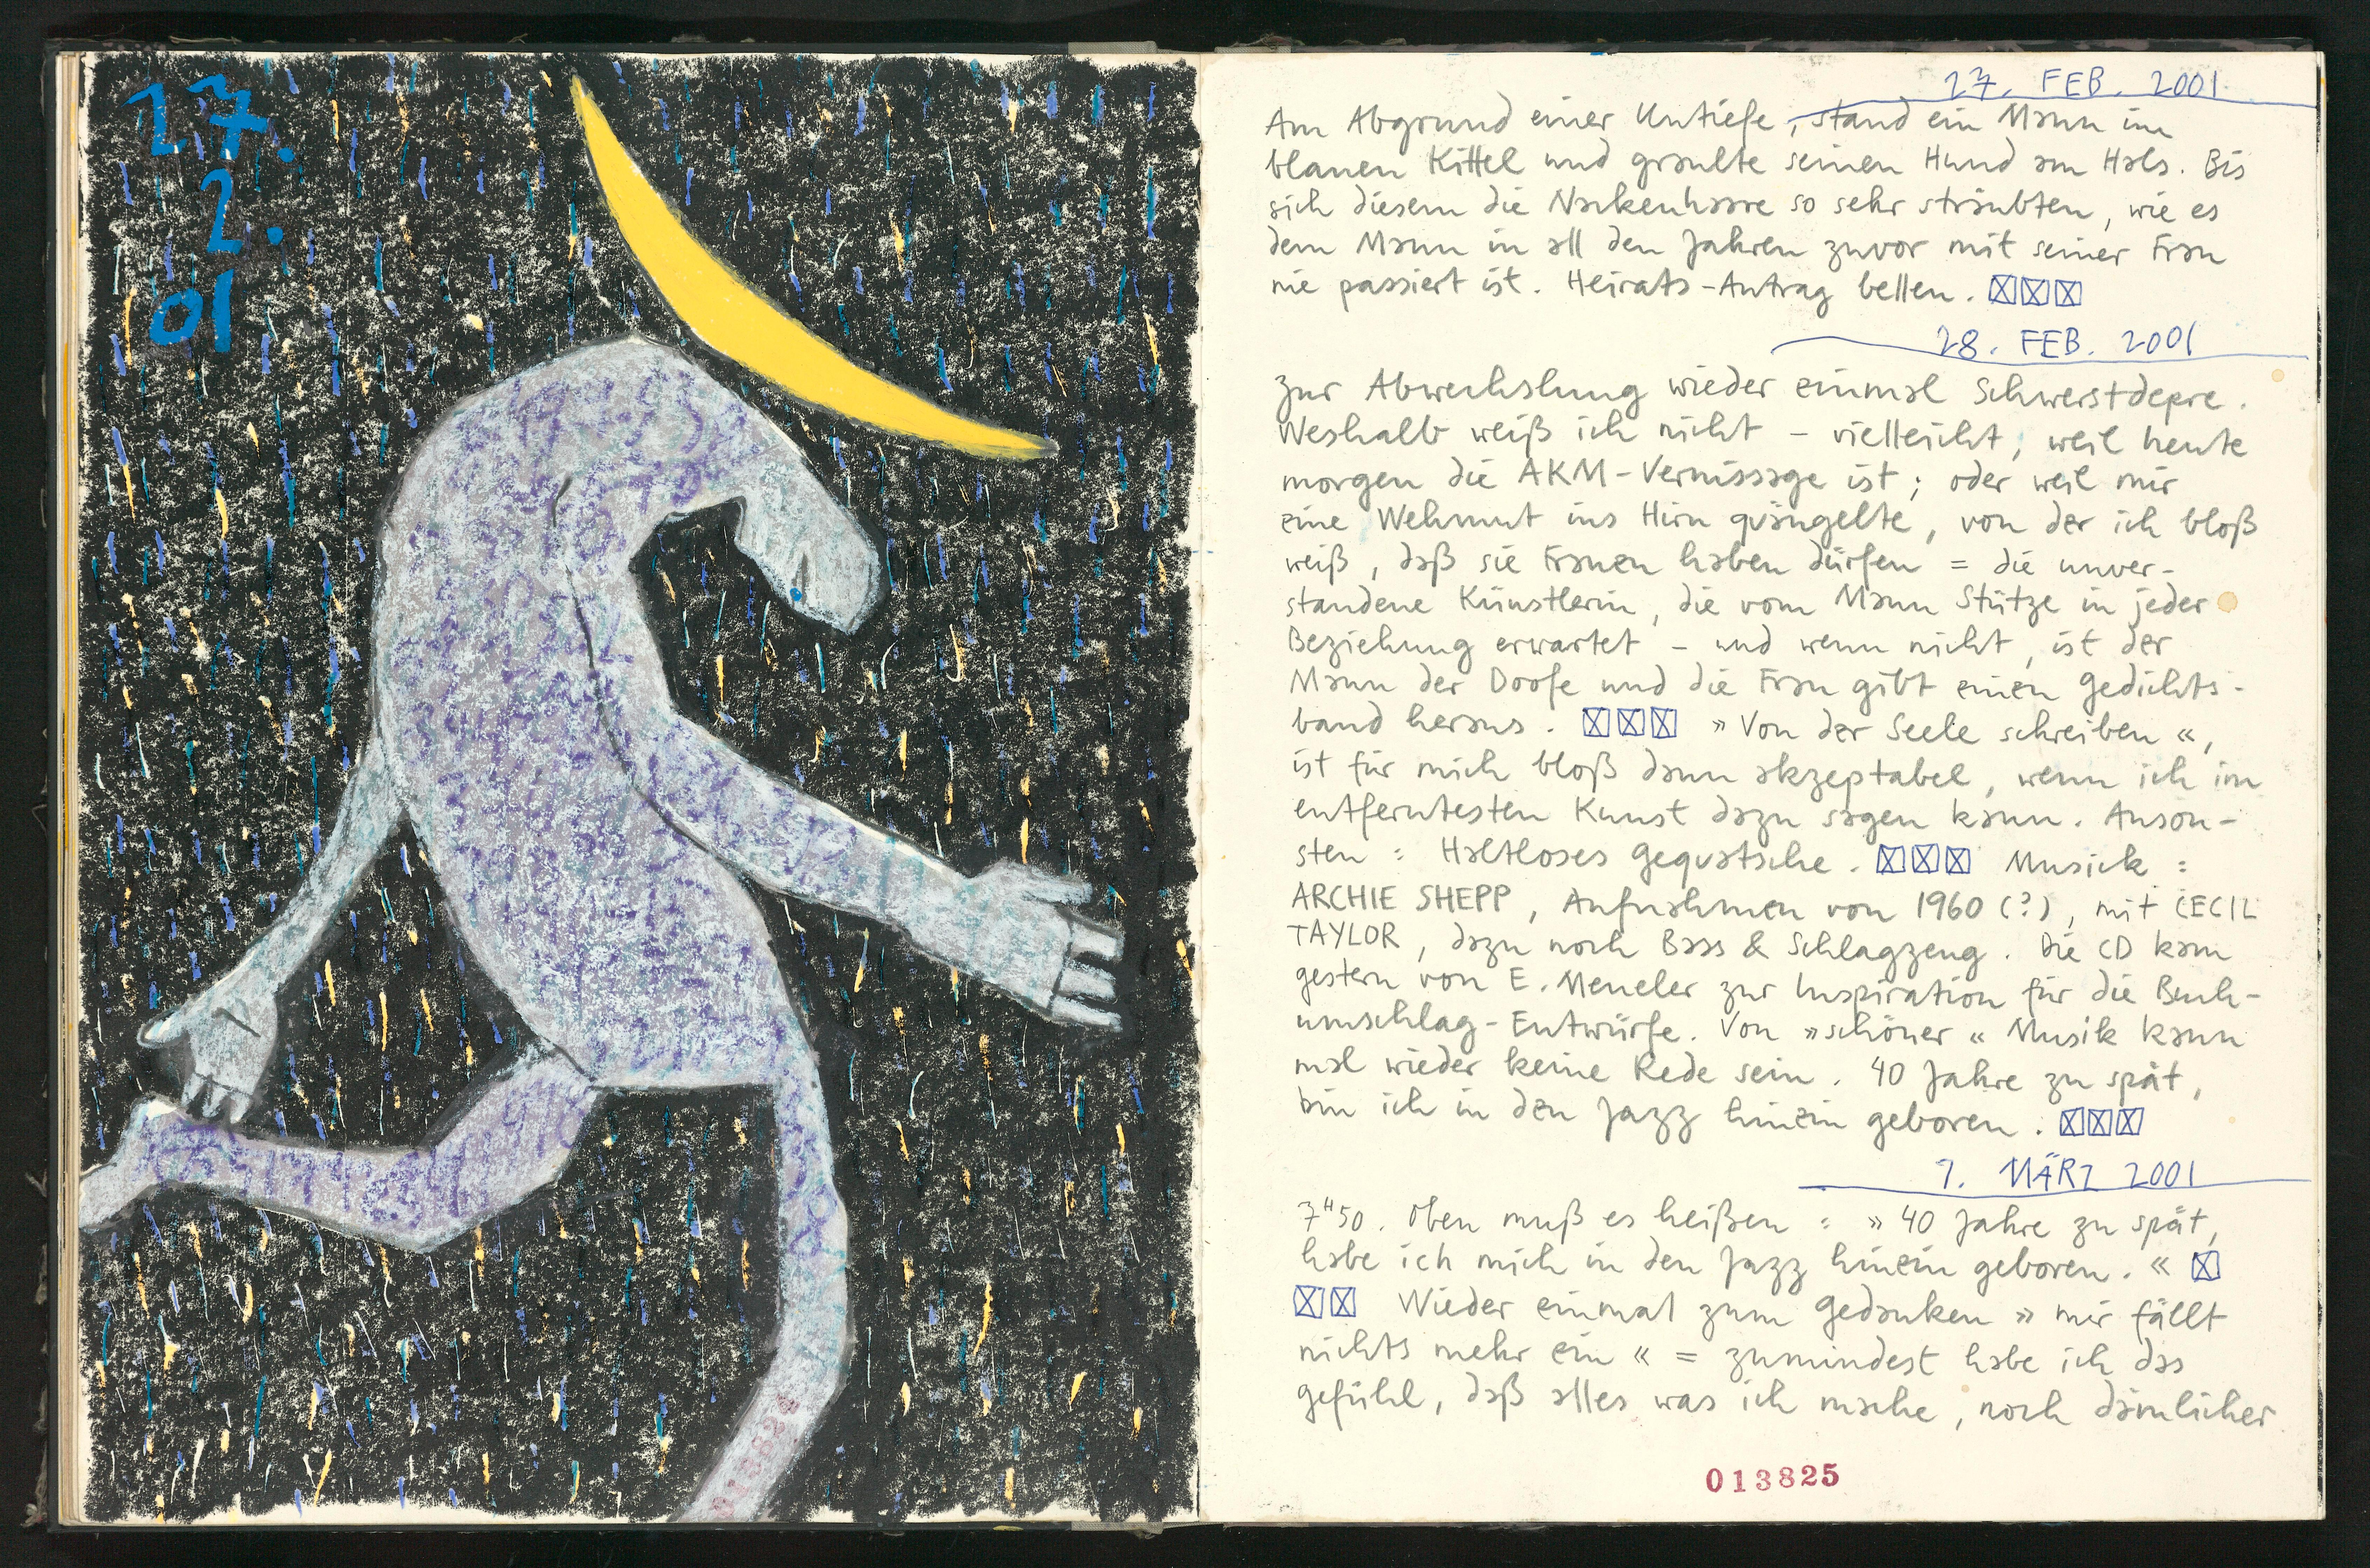 17.
2.
01
27. FEB. 2001
Am Abgrund einer Untiefe, stand ein Mann im
blauen Kittel und graulte seinen Hund am Hals. Bis
sich diesem die Nackenhaare so sehr sträubten, wie es
dem Mann in all den Jahren zuvor mit seiner Frau
nie passiert ist. Heirats-Antrag bellen. ☒☒☒
28. FEB. 2001
Zur Abwechslung wieder einmal Schwerstdepre.
Weshalb weiß ich nicht – vielleicht, weil heute
morgen die AKM-Vernissage ist; oder weil mir
eine Wehmut ins Hirn quängelte, von der ich bloß
weiß, daß sie Frauen haben dürfen = die unver-
standene Künstlerin, die vom Mann Stütze in jeder
Beziehung erwartet – und wenn nicht, ist der
Mann der Doofe und die Frau gibt einen Gedichts-
band heraus. ☒☒☒ »Von der Seele schreiben«,
ist für mich bloß dann akzeptabel, wenn ich im
entferntesten Kunst dazu sagen kann. Anson-
sten: Haltloses Gequatsche. ☒☒☒ Musick:
ARCHIE SHEPP, Aufnahmen von 1960 (?), mit CECIL
TAYLOR, dazu noch Bass & Schlagzeug. Die CD kam
gestern von E. Meneler zur Inspiration für die Buch-
umschlag-Entwürfe. Von »schöner« Musik kann
mal wieder keine Rede sein. 40 Jahre zu spät,
bin ich in den Jazz hinein geboren. ☒☒☒
1. MÄRZ 2001
7ʰ50. Oben muß es heißen: »40 Jahre zu spät,
habe ich mich in den Jazz hinein geboren.« ☒
☒☒ Wieder einmal zum Gedanken »mir fällt
nichts mehr ein« = zumindest habe ich das
Gefühl, daß alles was ich mache, noch dämlicher
013825